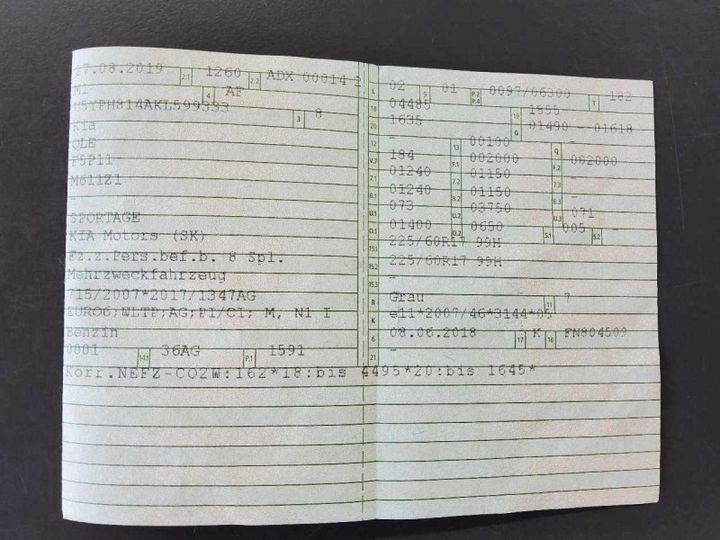 17.08.2019 2.1 1260 2.2 ADX 00014 2
M1 4 AF
U5YPH814AKL599333 3 8
Kia
QLE
F5P11
M611Z1
-
SPORTAGE
KIA Motors (SK)
Fz.z.Pers.bef.b. 8 Spl.
Mehrzweckfahrzeug
715/2007*2017/1347AG
EURO6;WLTP;AG;PI/CI; M, N1 I
Benzin
0001 14.1 36AG P.1 1591
L 02 9 01 P.2 P.4 0097/06300 T 182
18 04485 19 1855
20 1635 G 01490 - 01618
12 - 13 00100 Q -
V.7 184 F.1 002000 F.2 002000
7.1 01240 7.2 01150 7.3 -
8.1 01240 8.2 01150 8.3 -
U.1 073 U.2 03750 U.3 071
O.1 01400 O.2 0650 S.1 005 S.2 -
15.1 225/60R17 99H
15.2 225/60R17 99H
15.3 -
R Grau 11 7
K e11*2007/46*3144*05
6 08.06.2018 17 K 16 FN804509
21 -
Korr.NEFZ-CO2W:162*18:bis 4495*20:bis 1645*